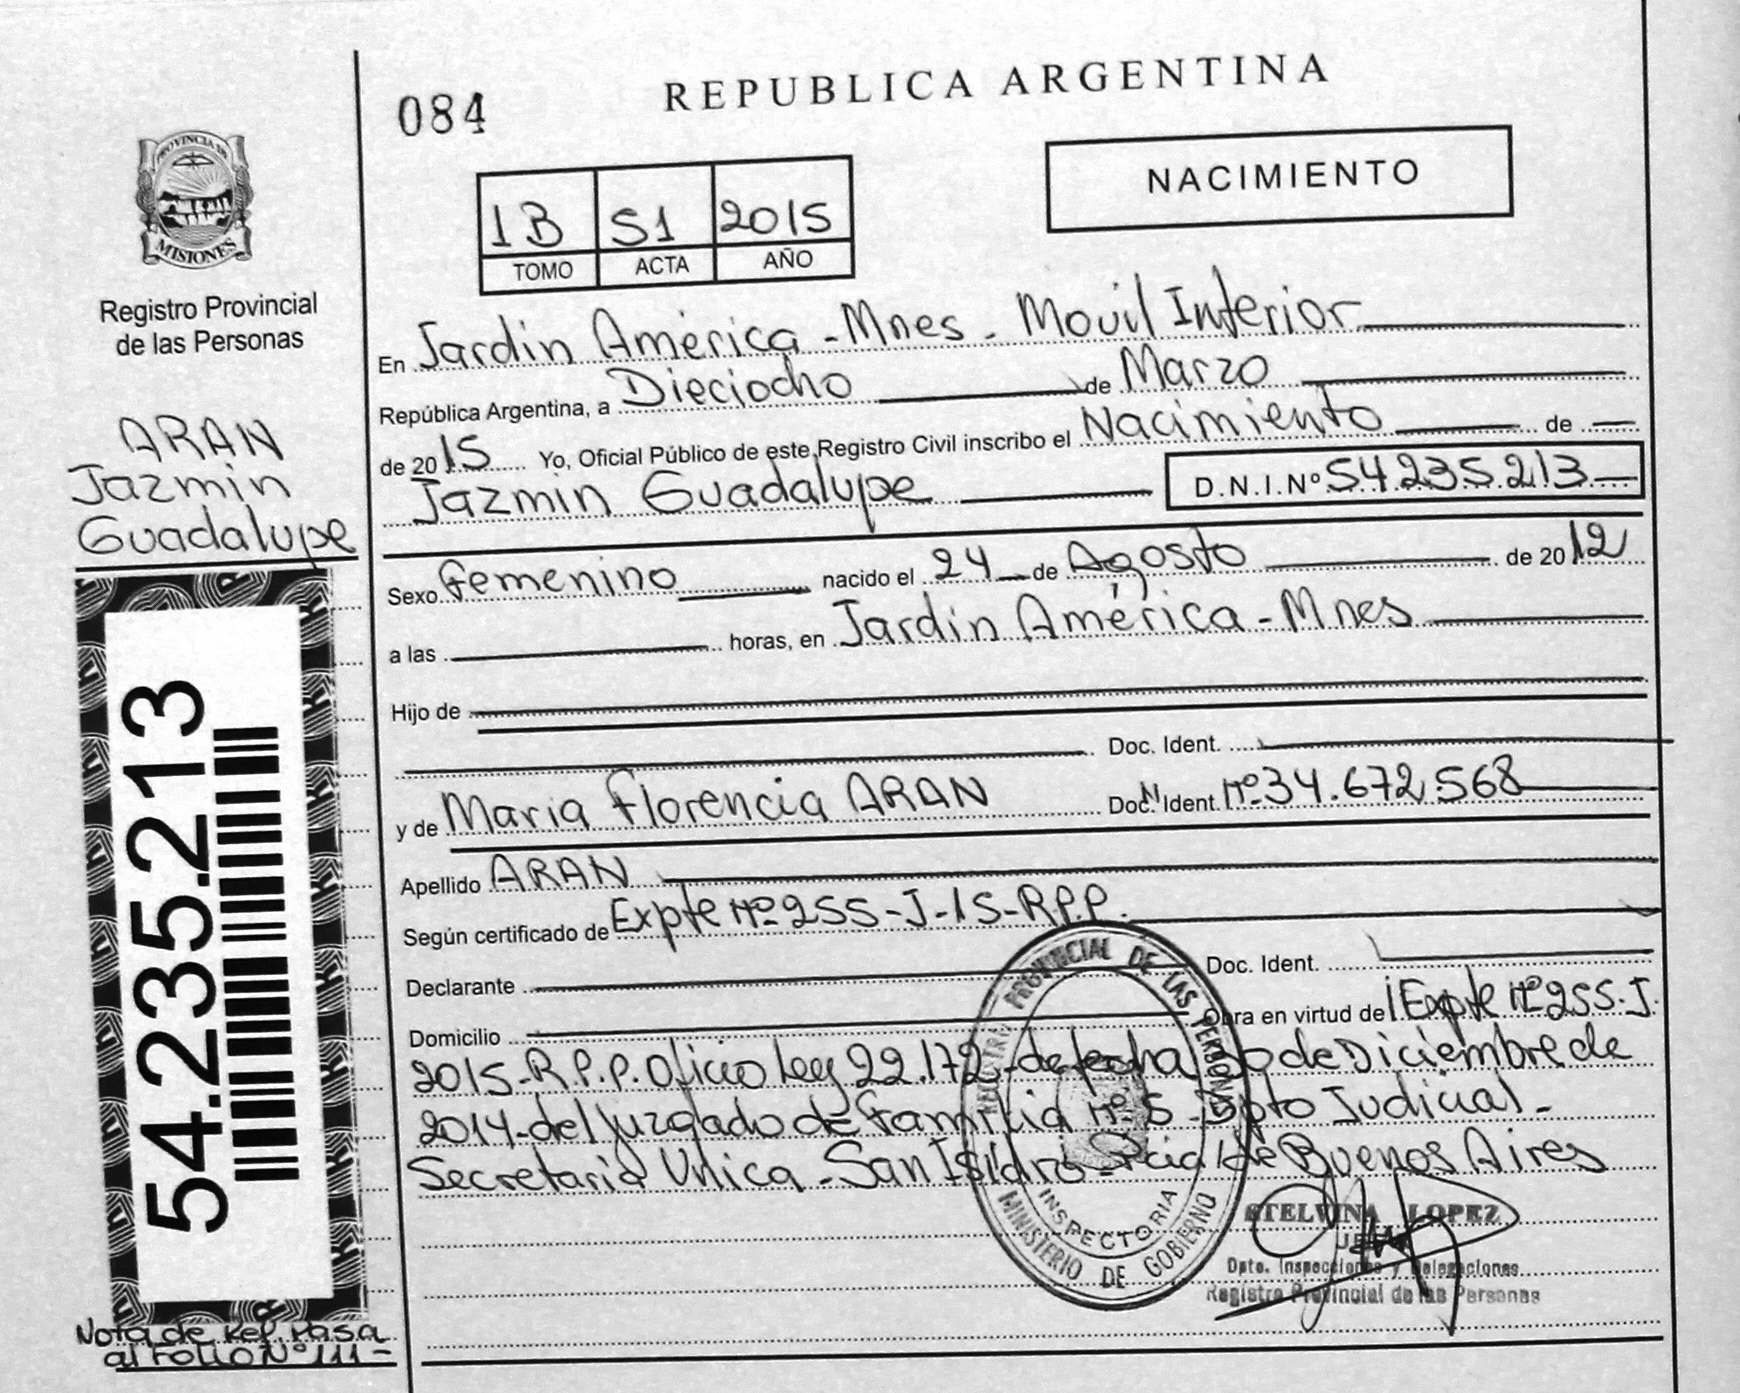 084
REPUBLICA ARGENTINA
PROVINCIA DE
MISIONES
Registro Provincial
de las Personas
NACIMIENTO
1B 51 2015
TOMO ACTA AÑO
En Jardin América - Mnes - Movil Interior
República Argentina, a Dieciocho de Marzo
de 2015 Yo, Oficial Público de este Registro Civil inscribo el Nacimiento de
Jazmin Guadalupe D.N.I.Nº 54.235.213
ARAN
Jazmin
Guadalupe
Sexo Femenino nacido el 24 de Agosto de 2012
a las horas, en Jardin América - Mnes
Hijo de
Doc. Ident.
y de Maria Florencia ARAN Doc. Ident. Nº 34.672.568
Apellido ARAN
Según certificado de Expte Nº 255-J-15-R.P.P.
Declarante Doc. Ident.
Domicilio Obra en virtud de Expte Nº 255-J-
2015-R.P.P. Oficio Ley 22.172 - de fecha 30 de Diciembre de
2014 - del Juzgado de Familia Nº 5 - Dpto Judicial -
Secretaria Unica - San Isidro - Pcia de Buenos Aires
54.235.213
REGISTRO PROVINCIAL DE LAS PERSONAS
INSPECTORIA
MINISTERIO DE GOBIERNO
STELVINA LOPEZ
JEFA
Dpto. Inspecciones y Delegaciones
Registro Provincial de las Personas
Nota de Ref. Pasa
al FOLIO Nº 111 -